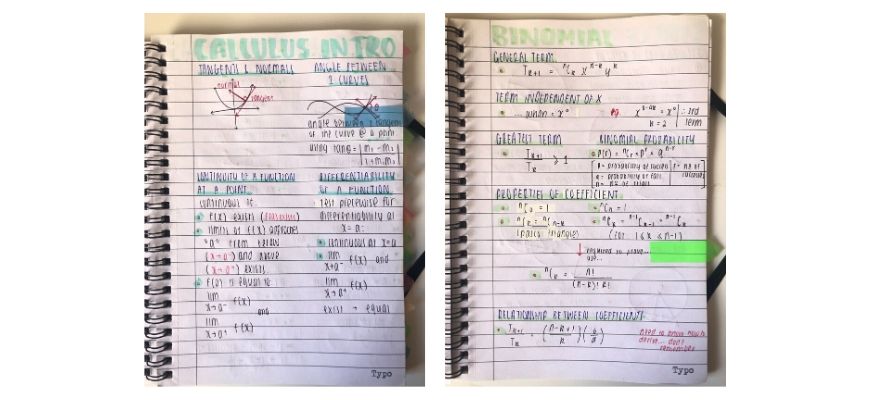 CALCULUS INTRO
TANGENTS & NORMALS
normal
tangent
ANGLE BETWEEN
2 CURVES
θ
angle between 2 tangents
of the curve @ a point
using tanθ = |m₁ - m₂ / 1 + m₁m₂|
CONTINUITY OF A FUNCTION
AT A POINT.
continuous if:
f(x) exists
limits of f(x) approaches
"a" from below
(x→a⁻) and above
(x→a⁺) exists.
f(a) is equal to
lim f(x)
x→a⁻
and
lim f(x)
x→a⁺
DIFFERENTIABILITY
OF A FUNCTION
test piecewise for
differentiability at
x = a:
continuous at x=a
lim f(x) and
x→a⁻
lim f(x)
x→a⁺
exist + equal
Typo
BINOMIAL
GENERAL TERM
Tₖ₊₁ = ⁿCₖ xⁿ⁻ᵏ yᵏ
TERM INDEPENDENT OF X
... when = x⁰
eg. = x⁰ ∴ 3rd
k = 2 term
GREATEST TERM
Tₖ₊₁ / Tₖ > 1
BINOMIAL PROBABILITY
P = probability of success
q = probability of fail
n = no of trials
r = no of
successes
PROPERTIES OF COEFFICIENT
ⁿC₀ = 1
ⁿCₙ = 1
ⁿCₖ = ⁿCₙ₋ₖ
ⁿCₖ = ⁿ⁻¹Cₖ₋₁ + ⁿ⁻¹Cₖ
Pascal's triangles
(for 1 ≤ k ≤ n-1)
required to prove...
use...
ⁿCₖ = n! / (n-k)! k!
RELATIONSHIP BETWEEN COEFFICIENTS
Tₖ₊₁ / Tₖ = (n-k+1 / k)(b / a)
need to know how to
derive... don't
remember
Typo